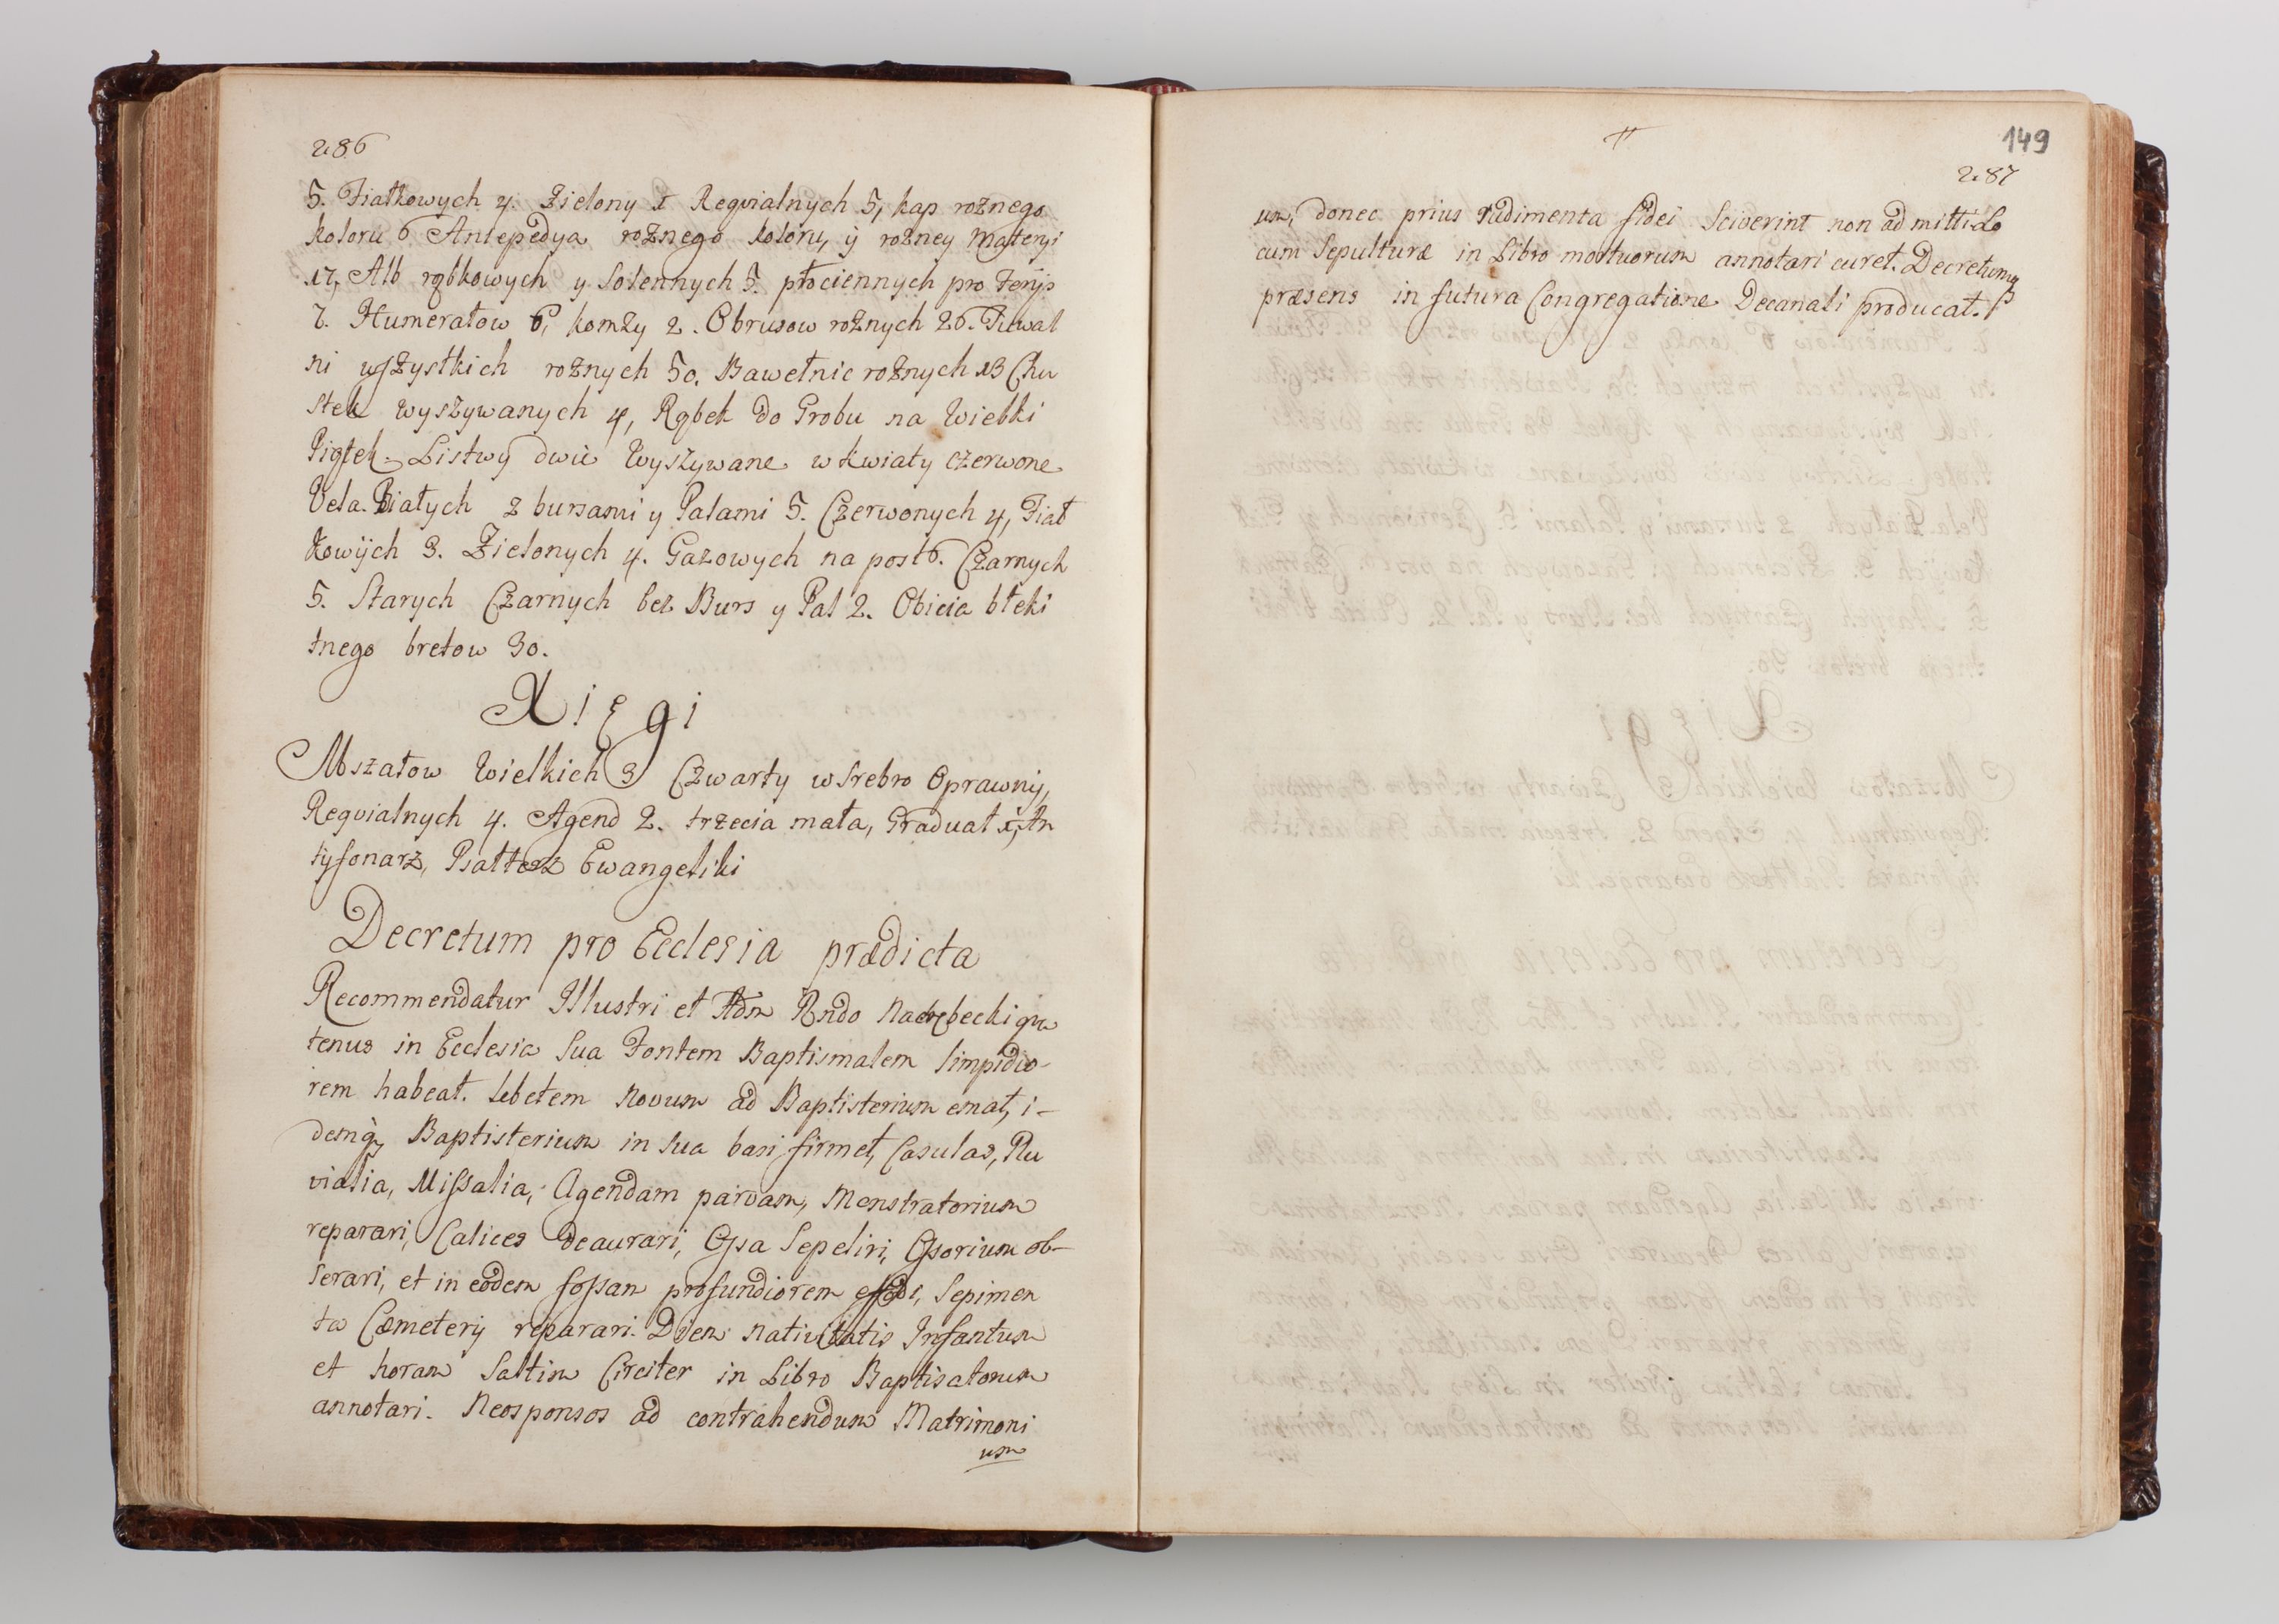 286
5. Fiałkowych 4. Zielony 1 Reqvialnych 5, kap rożnego
koloru 6 Antepedya rożnego koloru, ÿ rożney materyi
17, Alb rąbkowych y Solennych 5. płociennych pro ferijs
7. Humerałow 6, komży 2. Obrusow rożnych 26. Tuwal
ni wszystkich rożnych 50. Bawełnic rożnych 13 Chu
stek wyszywanych 4, Rąbek do Grobu na Wielki
Piątek. Listwy dwie Wyszywane w kwiaty czerwone
Vela. Białych z bursami y Palami 5. Czerwonych 4, Fiał
kowÿch 3. Zielonych 4. Gazowych na post 6. Czarnych
5. Starych Czarnych bez Burs y Pal 2. Obicia błeki
tnego bretow 30.
Xięgi
Mszałow Wielkich 3 Czwarty w Srebro Oprawny,
Reqvialnych 4. Agend 2. trzecia mała, Graduał 1, An
tyfonarz, Psałterz Ewangeliki
Decretum pro Ecclesia prædicta
Recommendatur Illustri et Adm Rndo qva
tenus in Ecclesia Sua Fontem Baptismalem limpidio-
rem habeat. Lebetem Novum ad Baptisterium emat, i-
demq; Baptisterium in sua basi firmet, Casulas, Plu
vialia, Missalia, Agendam parvam, Monstratorium
reparari, Calices deaurari, Ossa Sepeliri, Ossorium ob-
serari, et in eodem fossam profundiorem effodi, Sepimen
ta Cæmeterij reparari. Diem nativitatis Infantum
et horam Saltim Circiter in Libro Baptisatorum
annotari. Neosponsos ad contrahendum Matrimoni
um
149
287
um, donec prius rudimenta fidei Sciverint non admitti Lo
cum Sepulturæ in Libro mortuorum annotari curet. Decretumq;
præsens in futura Congregatione Decanali producat.